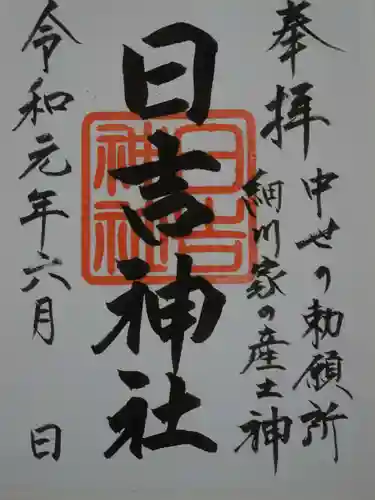 奉拝
中世の勅願所
細川家の産土神
日吉神社
日吉神社
令和元年六月 日